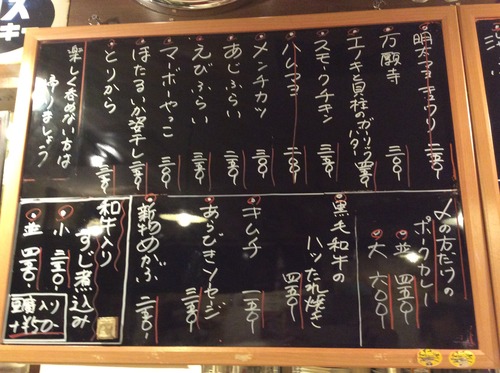 明太マヨキュウリ 二五〇
万願寺 三〇〇
エノキと貝柱の
スモークチキン 三五〇
ハムマヨ 二〇〇
メンチカツ 三〇〇
あじふらい 三〇〇
えびふらい 三五〇
マーボーやっこ 三五〇
ほたるいか姿干し 三五〇
とりから 三五〇
楽しく呑めない方は
帰りましょう
〆の方だけの
ポークカレー
並 四五〇
大 六〇〇
黒毛和牛の
ハツたれ焼き 四五〇
キムチ 二五〇
あらびきソーセージ 三五〇
新物めかぶ 二五〇
和牛入り
すじ煮込み
小 三五〇
並 四五〇
豆腐入り
+¥50-